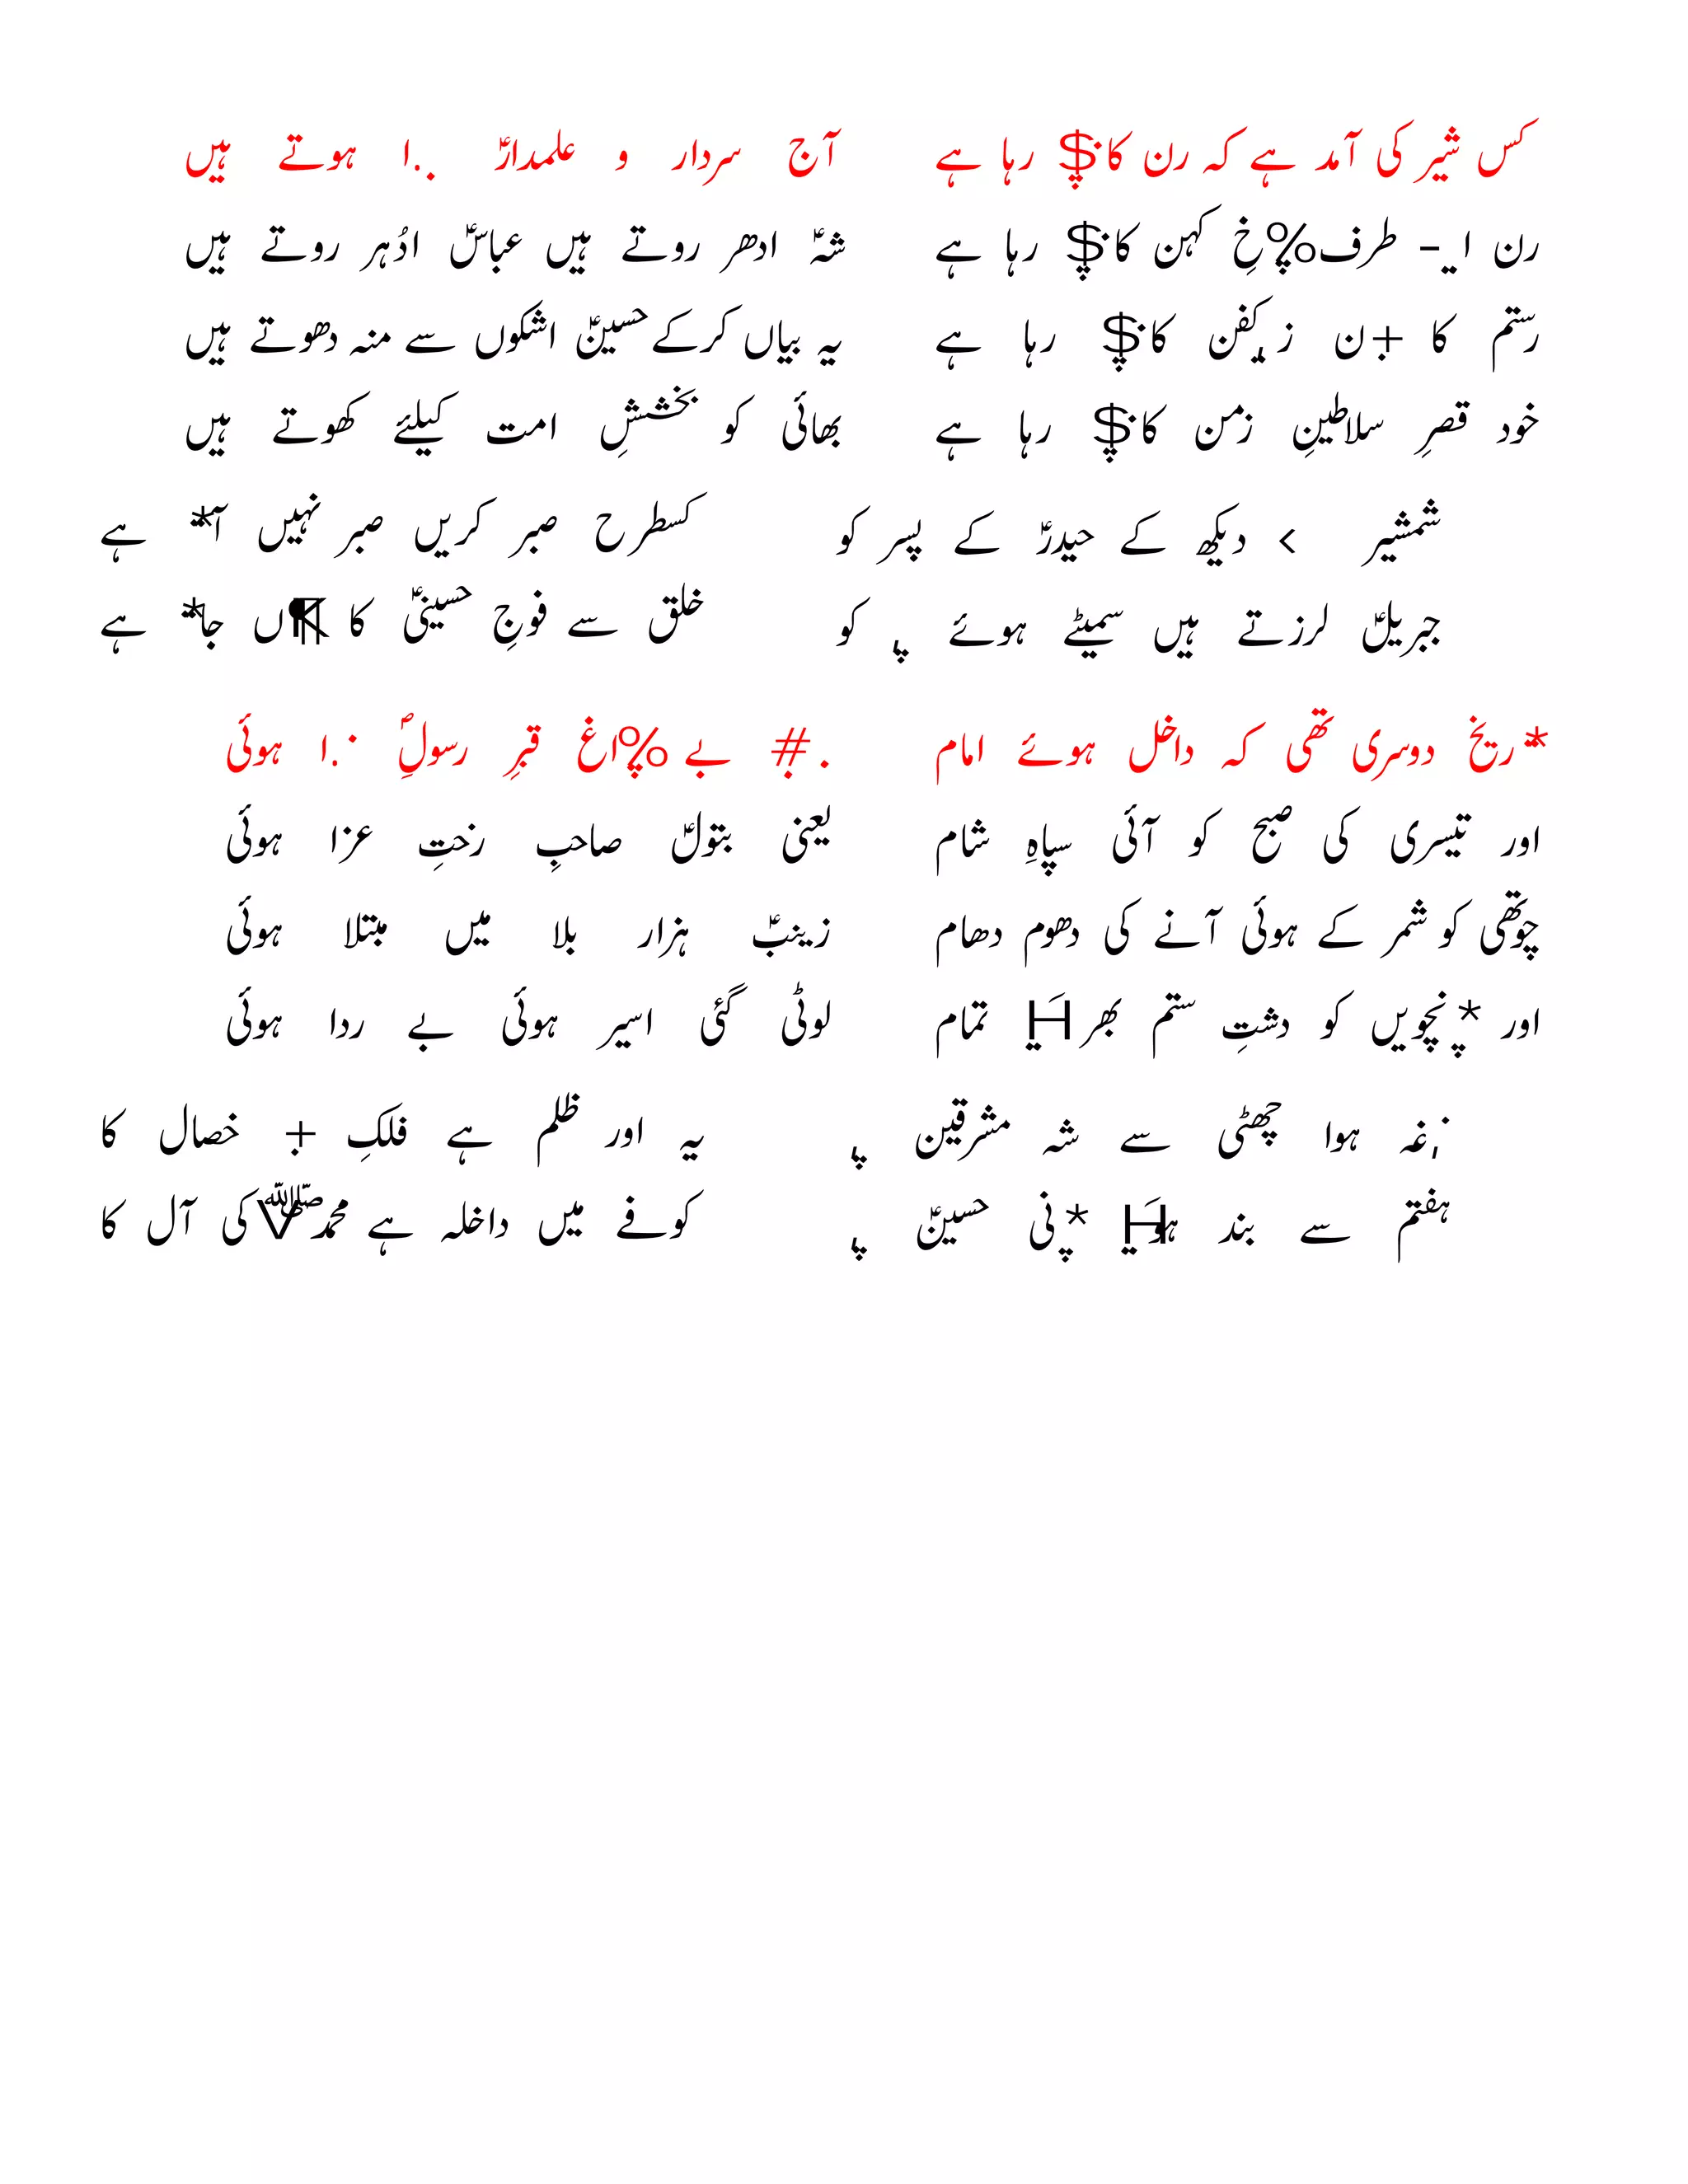 کس شیر کی آمد ہے کہ رن کا$ رہا ہے
رن ا- طرف %خِ کہن کا$ رہا ہے
رستم کا +ن زیر کفن کا$ رہا ہے
خود قصرِ سلاطینِ زمن کا$ رہا ہے
شمشیر < دیکھ کے حیدرؑ کے پسر کو
جبریلؑ لرزتے ہیں سمیٹے ہوئے پ کو
آج سردار و علمدارؑ .ا ہوتے ہیں
شہؑ ادھر روتے ہیں عباسؑ ادُہر روتے ہیں
یہ بیاں کرکے حسینؑ اشکوں سے منہ دھوتے ہیں
بھائی کو بخششِ امت کیلئے کھوتے ہیں
کسطرح صبر کریں صبر نہیں آ* ہے
خلق سے فوجِ حسینیؑ کا ¶ں جا* ہے
*ریخ دوسری تھی کہ داخل ہوئے امام
اور تیسری کی صبح کو آئی سپاہِ شام
چوتھی کو شمر کے ہوئی آنے کی دھوم دھام
اور *نچویں کو دشتِ ستم بھرH تمام
;غہ ہوا چھٹی سے شہ مشرقین پ
ہفتم سے بند ہوH *نی حسینؑ پ
.# بے %اغ قبرِ رسولِؐ .ا ہوئی
یعنی بتولؑ صاحبِ رختِ عزا ہوئی
زینبؑ ہزار بلا میں مبتلا ہوئی
لوٹی گئی اسیر ہوئی بے ردا ہوئی
یہ اور ظلم ہے فلکِ + خصال کا
کوفے میں داخلہ ہے محمدﷺV کی آل کا